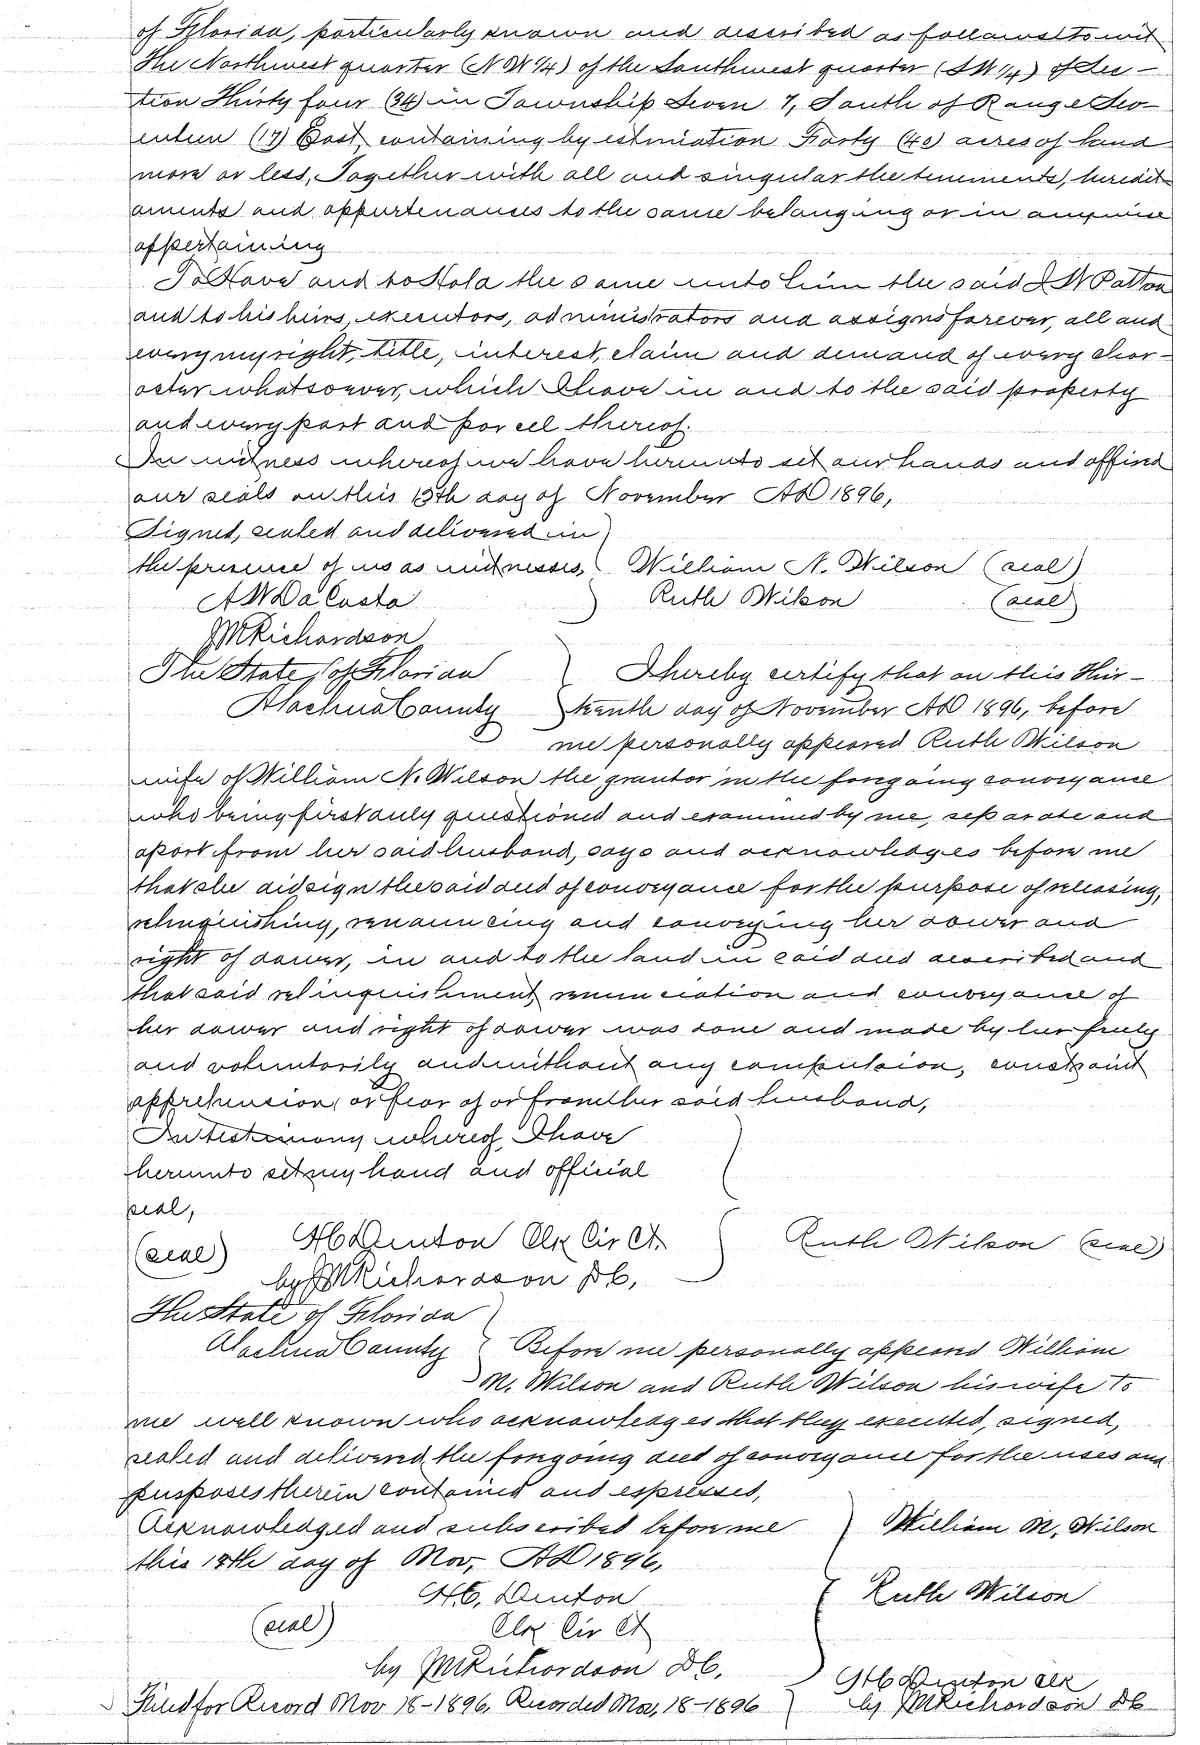 of Florida, particularly known and described as follows to wit
The Northwest quarter (NW 1/4) of the Southwest quarter (SW 1/4) of Sec-
tion Thirty four (34) in Township Seven 7, South of Range Sev-
enteen (17) East, containing by estimation Forty (40) acres of land
more or less, Together with all and singular the tenements, heredit-
aments and appurtenances to the same belonging or in anywise
appertaining
To Have and to Hold the same unto him the said J W Patton
and to his heirs, executors, administrators and assigns forever, all and
every my right, title, interest, claim and demand of every char-
acter whatsoever, which I have in and to the said property
and every part and parcel thereof.
In witness whereof we have hereunto set our hands and affixed
our seals on this 13th day of November AD 1896,
Signed, sealed and delivered in
the presence of us as witnesses, William N. Wilson (seal)
A W Da Costa Ruth Wilson (seal)
J M Richardson
The State of Florida I hereby certify that on this Thir-
Alachua County teenth day of November AD 1896, before
me personally appeared Ruth Wilson
wife of William N. Wilson the grantor in the foregoing conveyance
who being first duly questioned and examined by me, separate and
apart from her said husband, says and acknowledges before me
that she did sign the said deed of conveyance for the purpose of releasing,
relinquishing, renouncing and conveying her dower and
right of dower, in and to the land in said deed described and
that said relinquishment, renunciation and conveyance of
her dower and right of dower was done and made by her freely
and voluntarily and without any compulsion, constraint
apprehension, or fear of or from her said husband,
In testimony whereof, I have
hereunto set my hand and official
seal,
(seal) H C Denton Clk Cir Ct. Ruth Wilson (seal)
by J M Richardson DC,
The State of Florida
Alachua County Before me personally appeared William
M. Wilson and Ruth Wilson his wife to
me well known who acknowledges that they executed, signed,
sealed and delivered the foregoing deed of conveyance for the uses and
purposes therein contained and expressed,
Acknowledged and subscribed before me William M. Wilson
this 13th day of Nov, AD 1896,
H.C. Denton Ruth Wilson
(seal) Clk Cir Ct
by J M Richardson DC. H C Denton Clk
Filed for Record Nov 18-1896, Recorded Nov, 18-1896 by J M Richardson DC